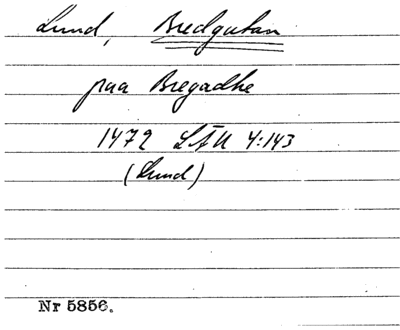 Lund, Bredgatan
paa Bregadhe
1472 LÄU 4:143
(Lund)
Nr 5856.